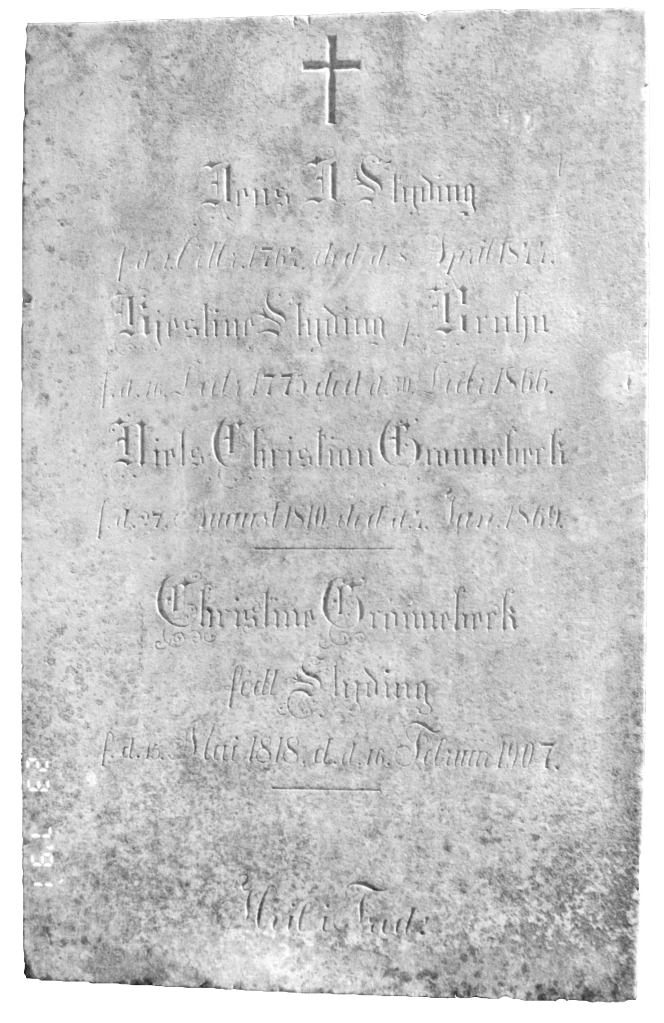 Jens J Slyding
f. d. 1. 1767. død d. 8. April 1844.
Kjestine Slyding f. Kruhn
f. d. 16. 1775 død d. 30. 1866.
Niels Christian Grønnebeck
f. d. 27. August 1810. død d. Jan. 1869.
Christine Grønnebeck
född Slyding
f. d. 15. Mai 1818. d. d. 16. Februar 1907.
Hvil i Fred.